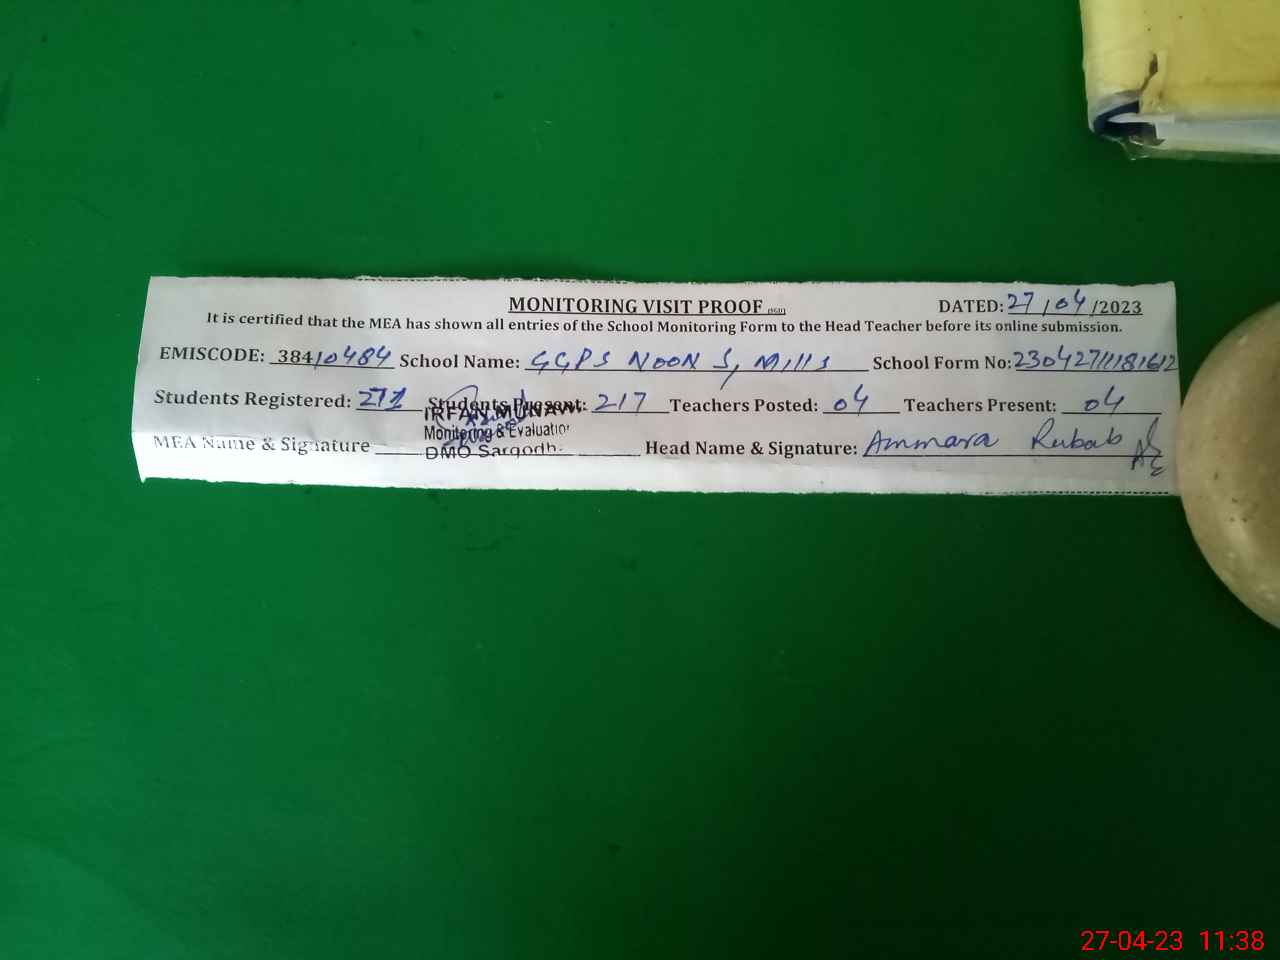 MONITORING VISIT PROOF (SGD) DATED: 27/04/2023
It is certified that the MEA has shown all entries of the School Monitoring Form to the Head Teacher before its online submission.
EMISCODE: 38410484 School Name: GGPS NOON S, Mills School Form No: 230427111181612
Students Registered: 271 Students Present: 217 Teachers Posted: 04 Teachers Present: 04
IRFAN MUNAW
Monitoring & Evaluation
DMO Sargodh
MEA Name & Signature Head Name & Signature: Ammara Rubab
27-04-23 11:38